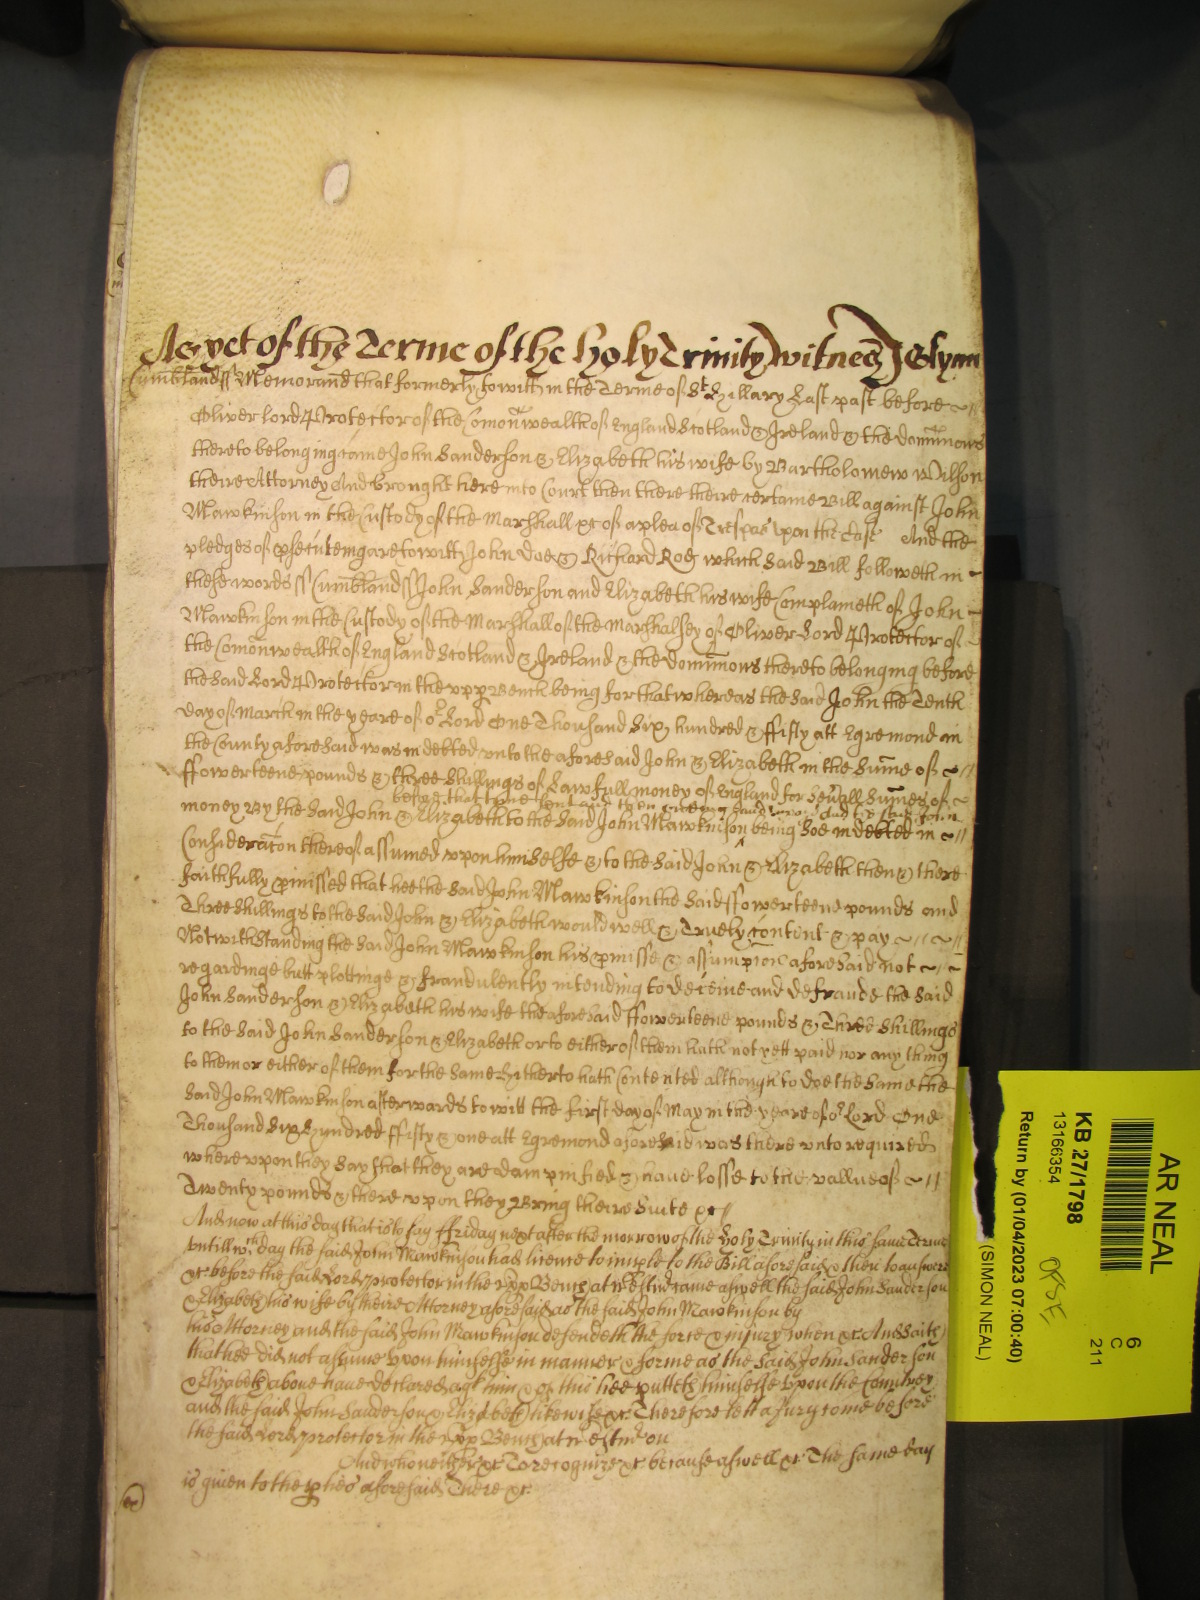 As yet of the Terme of the holy Trinity witnes J Glynn
Cumblandss Memorand that formerly to witt in the Terme of St Hillary Last past before
Oliver lord Protector of the Comonwealth of England Scotland & Ireland & the dominions
thereto belonging came John Sanderson & Elizabeth his wife by Bartholomew Wilson
theire Attorney And brought here into Court then there theire certaine Bill against John
Mawkinson in the Custody of the Marshall &c of a plea of Trespas upon the Case And the
pledges of psecuteing are to witt John Doe & Richard Roe which said Bill followeth in
these words ss Cumblandss John Sanderson and Elizabeth his wife Complaineth of John
Mawkinson in the Custody of the Marshall of the Marshalsey of Oliver Lord Protector of
the Comonwealth of England Scotland & Ireland & the dominions thereto belonging before
the said Lord Protector in the upp Bench being for that whereas the said John the Tenth
day of March in the yeare of or Lord One Thousand Six hundred & ffifty att Egremond in
the County aforesaid was indebted unto the aforesaid John & Elizabeth in the sume of
ffowerteene pounds & three shillings of Lawfull money of England for sevall sumes of
before that time lent and then
money By the said John & Elizabeth to the said John Mawkinson being soe indebted in
Consideracon thereof assumed upon himselfe & to the said John & Elizabeth then & there
faithfully pmissed that hee the said John Mawkinson the said ffowerteene pounds and
Three shillings to the said John & Elizabeth would well & Truely content & pay
Notwithstanding the said John Mawkinson his pmisse & assumpcion aforesaid not
regardinge butt plottinge & fraudulently intending to deceive and defraude the said
John Sanderson & Elizabeth his wife the aforesaid ffowerteene pounds & Three Shillings
to the said John Sanderson & Elizabeth or to either of them hath not yett paid nor any thing
to them or either of them for the same hitherto hath Contented although to doe the same the
said John Mawkinson afterwards to witt the first day of May in the yeare of or Lord One
Thousand Six hundred ffifty & one att Egremond aforesaid was there unto required
whereupon they say that they are dampnified & have losse to the vallue of
Twenty pounds & thereupon they Bring theire Suite &c
And now at this day that is to say ffriday next after the morrow of the Holy Trinity in this same Terme
untill wch day the said John Mawkinson had licence to imple to the Bill aforesaid & then to answere
&c before the said Lord protector in the upp Bench at Westmr came aswell the said John Sanderson
& Elizabeth his wife by theire Attorney aforesaid as the said John Mawkinson by
his Attorney and the said John Mawkinson defendeth the force & injury when &c And saith
that hee did not assume upon himselfe in manner & forme as the said John Sanderson
& Elizabeth above have declared agt him & of this hee putteth himselfe upon the Countrey
and the said John Sanderson & Elizabeth likewise &c Therefore lett a Jury come before
the said Lord protector in the upp Bench at Westmr on
And who neither &c To recognize &c because aswell &c The same day
is given to the pties aforesaid There &c
AR NEAL
6
C
211
KB 27/1798
13166354
Return by (01/04/2023 07:00:40)
(SIMON NEAL)